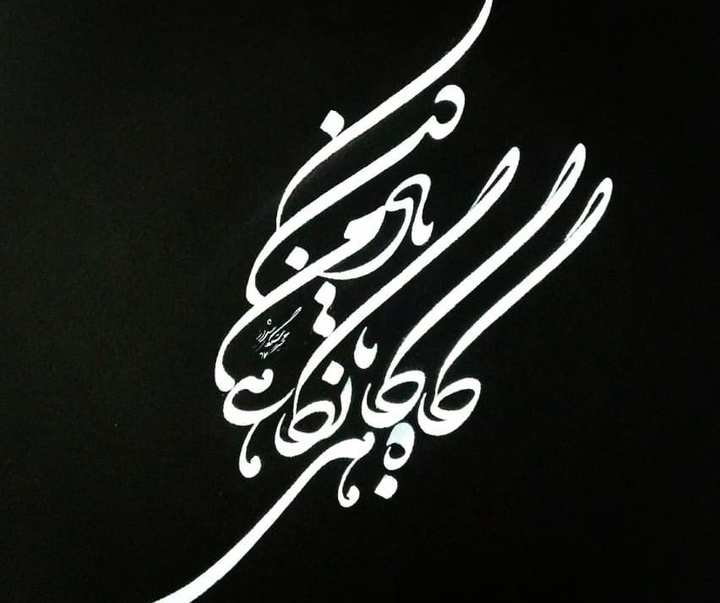 گاه گاهی با نگاهی
یاد من کن